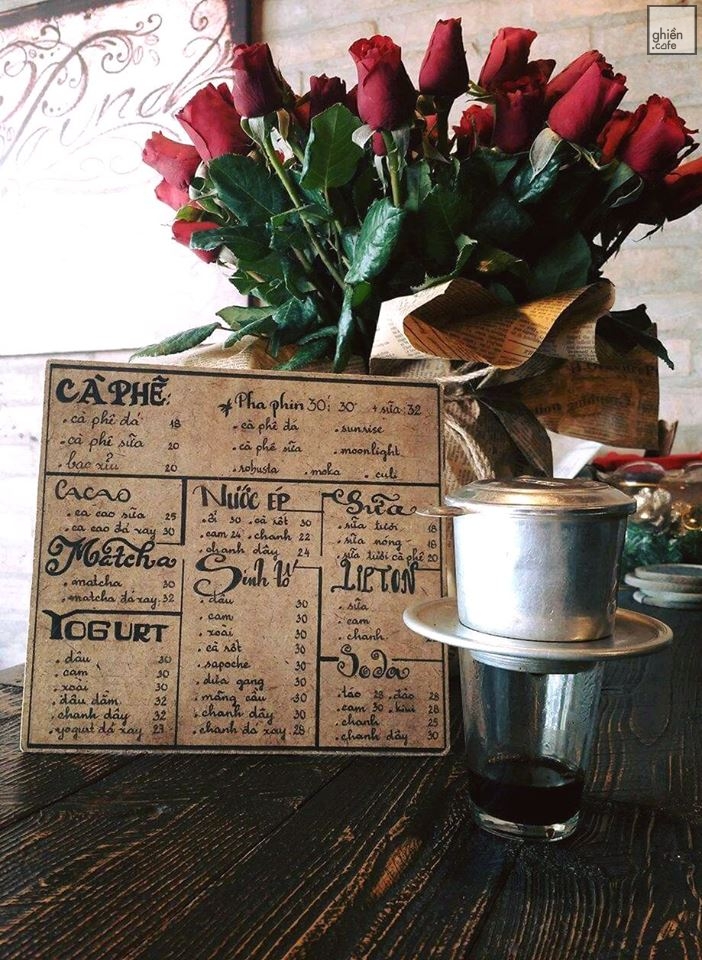 ghiền
.cafe
CÀ PHÊ:
. cà phê đá 18
. cà phê sữa 20
. bạc xỉu 20
* Pha phin 30; 30 + sữa: 32
. cà phê đá . sunrise
. cà phê sữa . moonlight
. robusta . moka . culi
CACAO
. ca cao sữa 25
. ca cao đá xay 30
Matcha
. matcha 30
. matcha đá xay. 32
YOGURT
. dâu 30
. cam 30
. xoài 30
. dâu dầm 32
. chanh dây 32
. yogurt đá xay 23
NƯỚC ÉP
. ổi 30 . cà rốt 30
. cam 24 . chanh 22
. chanh dây 24
Sinh tố
. dâu 30
. cam 30
. xoài 30
. cà rốt 30
. sapoche 30
. dưa gang 30
. mãng cầu 30
. chanh dây 30
. chanh đá xay. 28
Sữa
. sữa tươi. 18
. sữa nóng - 18
. sữa tươi cà phê 20
LIPTON
. sữa
. cam
. chanh
Soda
. táo 28 . đào 28
. cam 30 . kiwi 28
. chanh 25
. chanh dây 30